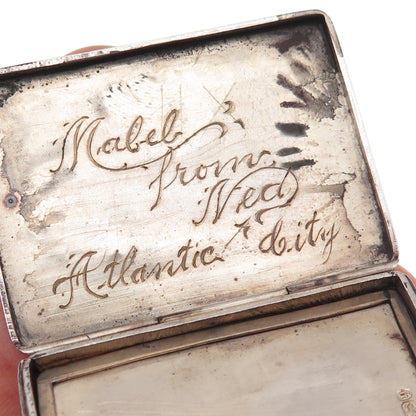 Mabel
from
Ned
Atlantic City